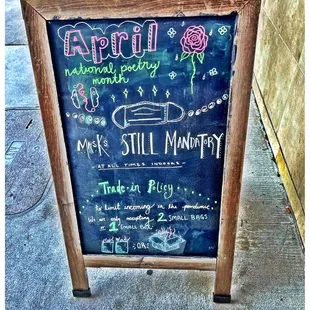 April
national poetry
month
MASKS STILL MANDATORY
AT ALL TIMES INDOORS
Trade-in Policy
to limit incoming in the pandemic
We are only accepting 2 SMALL BAGS
or 1 SMALL BOX